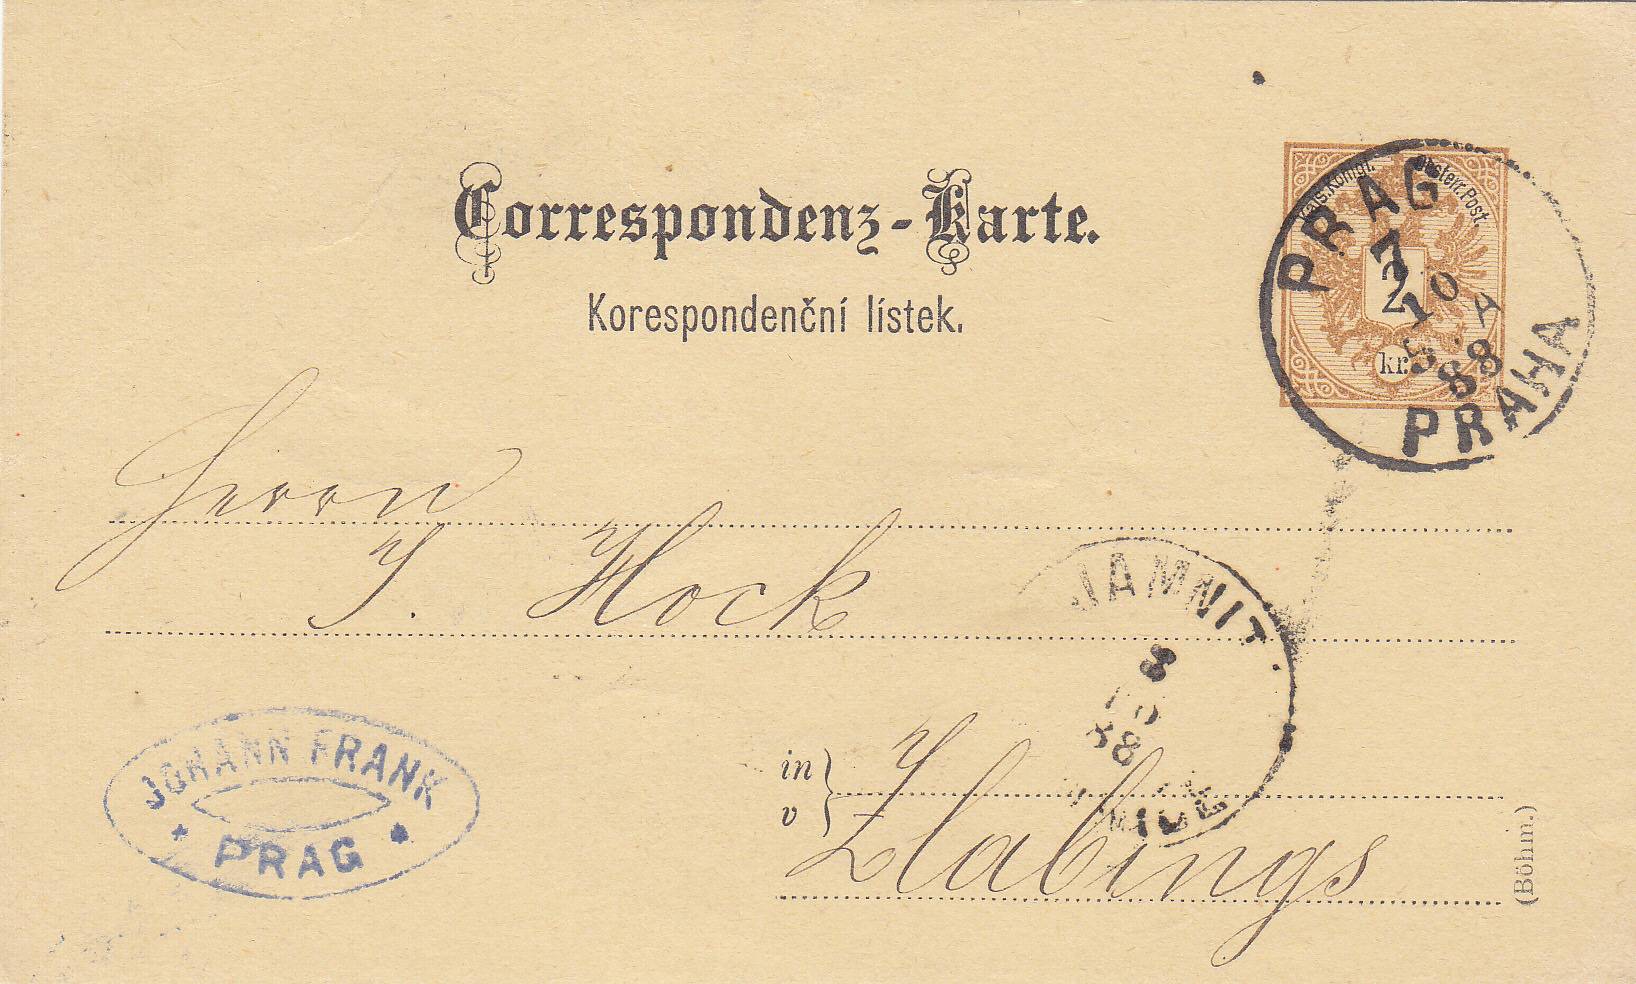 Correspondenz-Karte.
Korespondenční lístek.
Kais. Königl. Oesterr. Post.
2
kr.
PRAG
7
10 5 A
88
PRAHA
Herrn
J. Hock
JAMNIT
8
88
JOHANN FRANK
* PRAG *
in
v
Zlabings
(Böhm.)